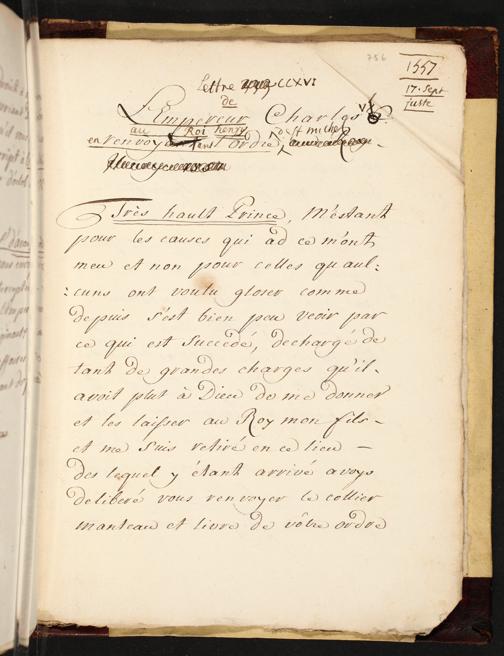 756
1557
17. Sept
juste
Lettre CCLXVI
de
L'Empereur Charles V
au Roi henry
en renvoyant son ordre de St michel
Très hault Prince, M'estant
pour les causes qui ad ce m'ont
meu et non pour celles qu'aul:
:cuns ont voulu gloser comme
depuis s'est bien peu veoir par
ce qui est succédé, dechargé de
tant de grandes charges qu'il-
avoit plut à Dieu de me donner
et les laisser au Roy mon fils-
et me suis retiré en ce lieu —
des lequel y étant arrivé avoys
deliberé vous renvoyer le collier
manteau et livre de vôtre ordre